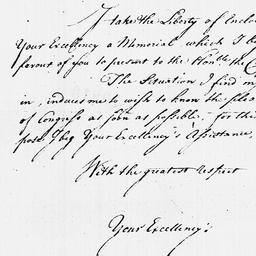 I take the Liberty of Enclo
Your Excellency a Memorial which I b
favour of you to present to the Honble the C
The Situation I find m
in, induces me to wish to know the plea
of Congress as soon as possible, for this
pose I beg Your Excellency's Assistance,
With the greatest respect
Your Excellency's